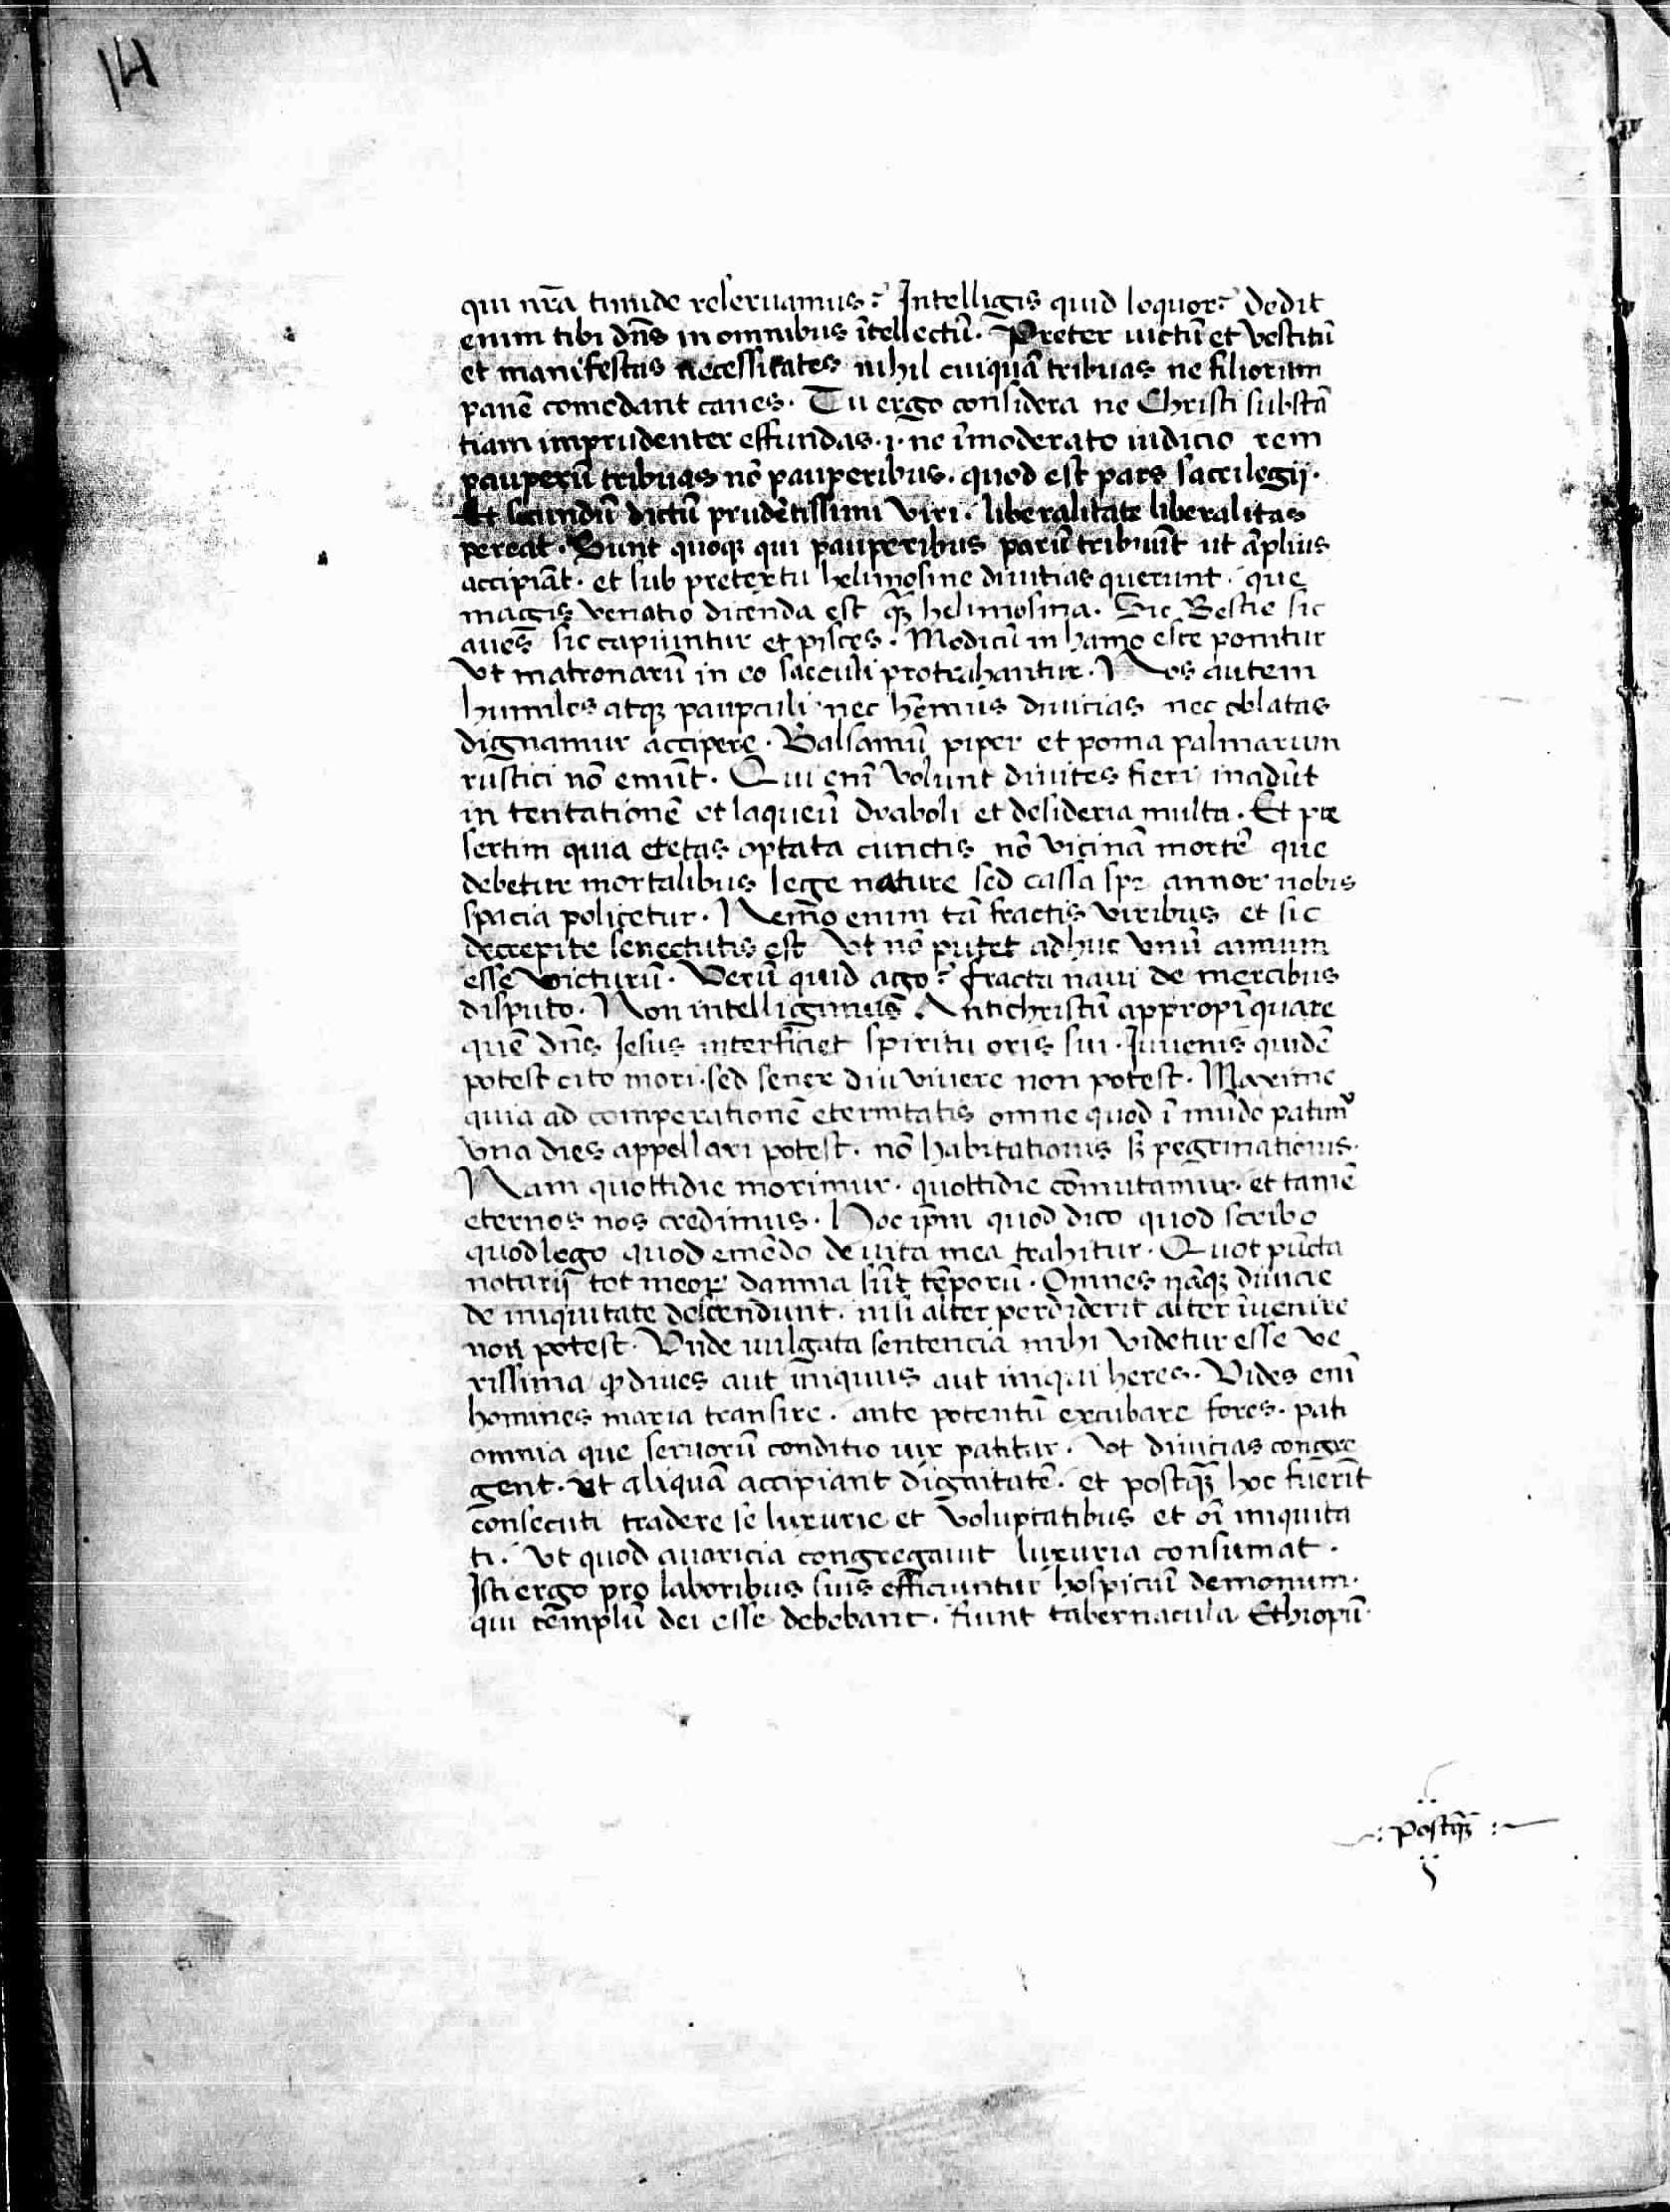 14
qui nr̄a timide reseruamus? Intelligis quid loquor? dedit
enim tibi dn̄s in omnibus ītellectū. Preter uictū et vestitū
et manifestas necessitates nihil cuiquā tribuas ne filiorum
panē comedant canes. Tu ergo considera ne Christi substā
tiam imprudenter effundas .i. ne īmoderato iudicio rem
pauperū tribuas nō pauperibus. quod est pars sacrilegij.
Et secundū dictū prudētissimi viri. liberalitate liberalitas
pereat. Sunt quoqꝫ qui pauperibus parū tribuūt ut āplius
accipiāt. et sub pretextu helimosine diuitias querunt. que
magis venatio dicenda est qꝫ̄ helimosina. Sic Bestie sic
aues sic capiuntur et pisces. Modicū in hamo esce ponitur
vt matronarū in eo sacculi protrahantur. Nos autem
humiles atqꝫ paupculi nec hēmus diuicias nec oblatas
dignamur accipere. Balsamū piper et poma palmarum
rustici nō emūt. Qui enī volunt diuites fieri incidūt
in tentationē et laqueū diaboli et desideria multa. Et pre
sertim quia etetas optata cunctis nō vicinā mortē que
debetur mortalibus lege nature sed cassa spe annor nobis
spacia policetur. Nemo enim tā fractis viribus et sic
decrepite senectutis est vt nō putet adhuc vnū annum
esse victurū. Verū quid ago? fracta naui de mercibus
disputo. Non intelligimus Antichristū appropīquare
quē dn̄s Jesus interficiet spiritu oris sui. Juuenis quidē
potest cito mori. sed senex diu viuere non potest. Maxime
quia ad comperationē eternitatis omne quod ī mūdo patim᷒
vna dies appellari potest. nō habitationis sꝫ pegrinationis.
Nam quottidie morimur. quottidie cōmutamur. et tamē
eternos nos credimus. Hoc ip̄m quod dico quod scribo
quod lego quod emēdo de uita mea trahitur. Quot pūcta
notarij tot meoꝝ damna sūt tēporū. Omnes nāqꝫ diuicie
de iniquitate descendunt. nisi alter perdiderit alter īuenire
non potest. Vnde uulgata sentencia mihi videtur esse ve
rissima ꝙ diues aut iniquus aut iniqui heres. Vides enī
homines maria transire. ante potentū excubare fores. pati
omnia que seruorū conditio uix patitur. vt diuicias congre
gent. ut aliquā accipiant dignitatē. et postqꝫ̄ hoc fuerīt
consecuti tradere se luxurie et voluptatibus et oī iniquita
ti. vt quod auaricia congregauit luxuria consumat.
Isti ergo pro laboribus suis efficiuntur hospiciū demonum.
qui templū dei esse debebant. fiunt tabernacula Ethiopū.
postqꝫ̄